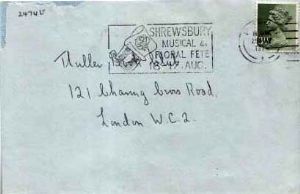 2474U
SHREWSBURY
MUSICAL &
FLORAL FETE
AUG.
121 Charing Cross Road,
London W.C.2.